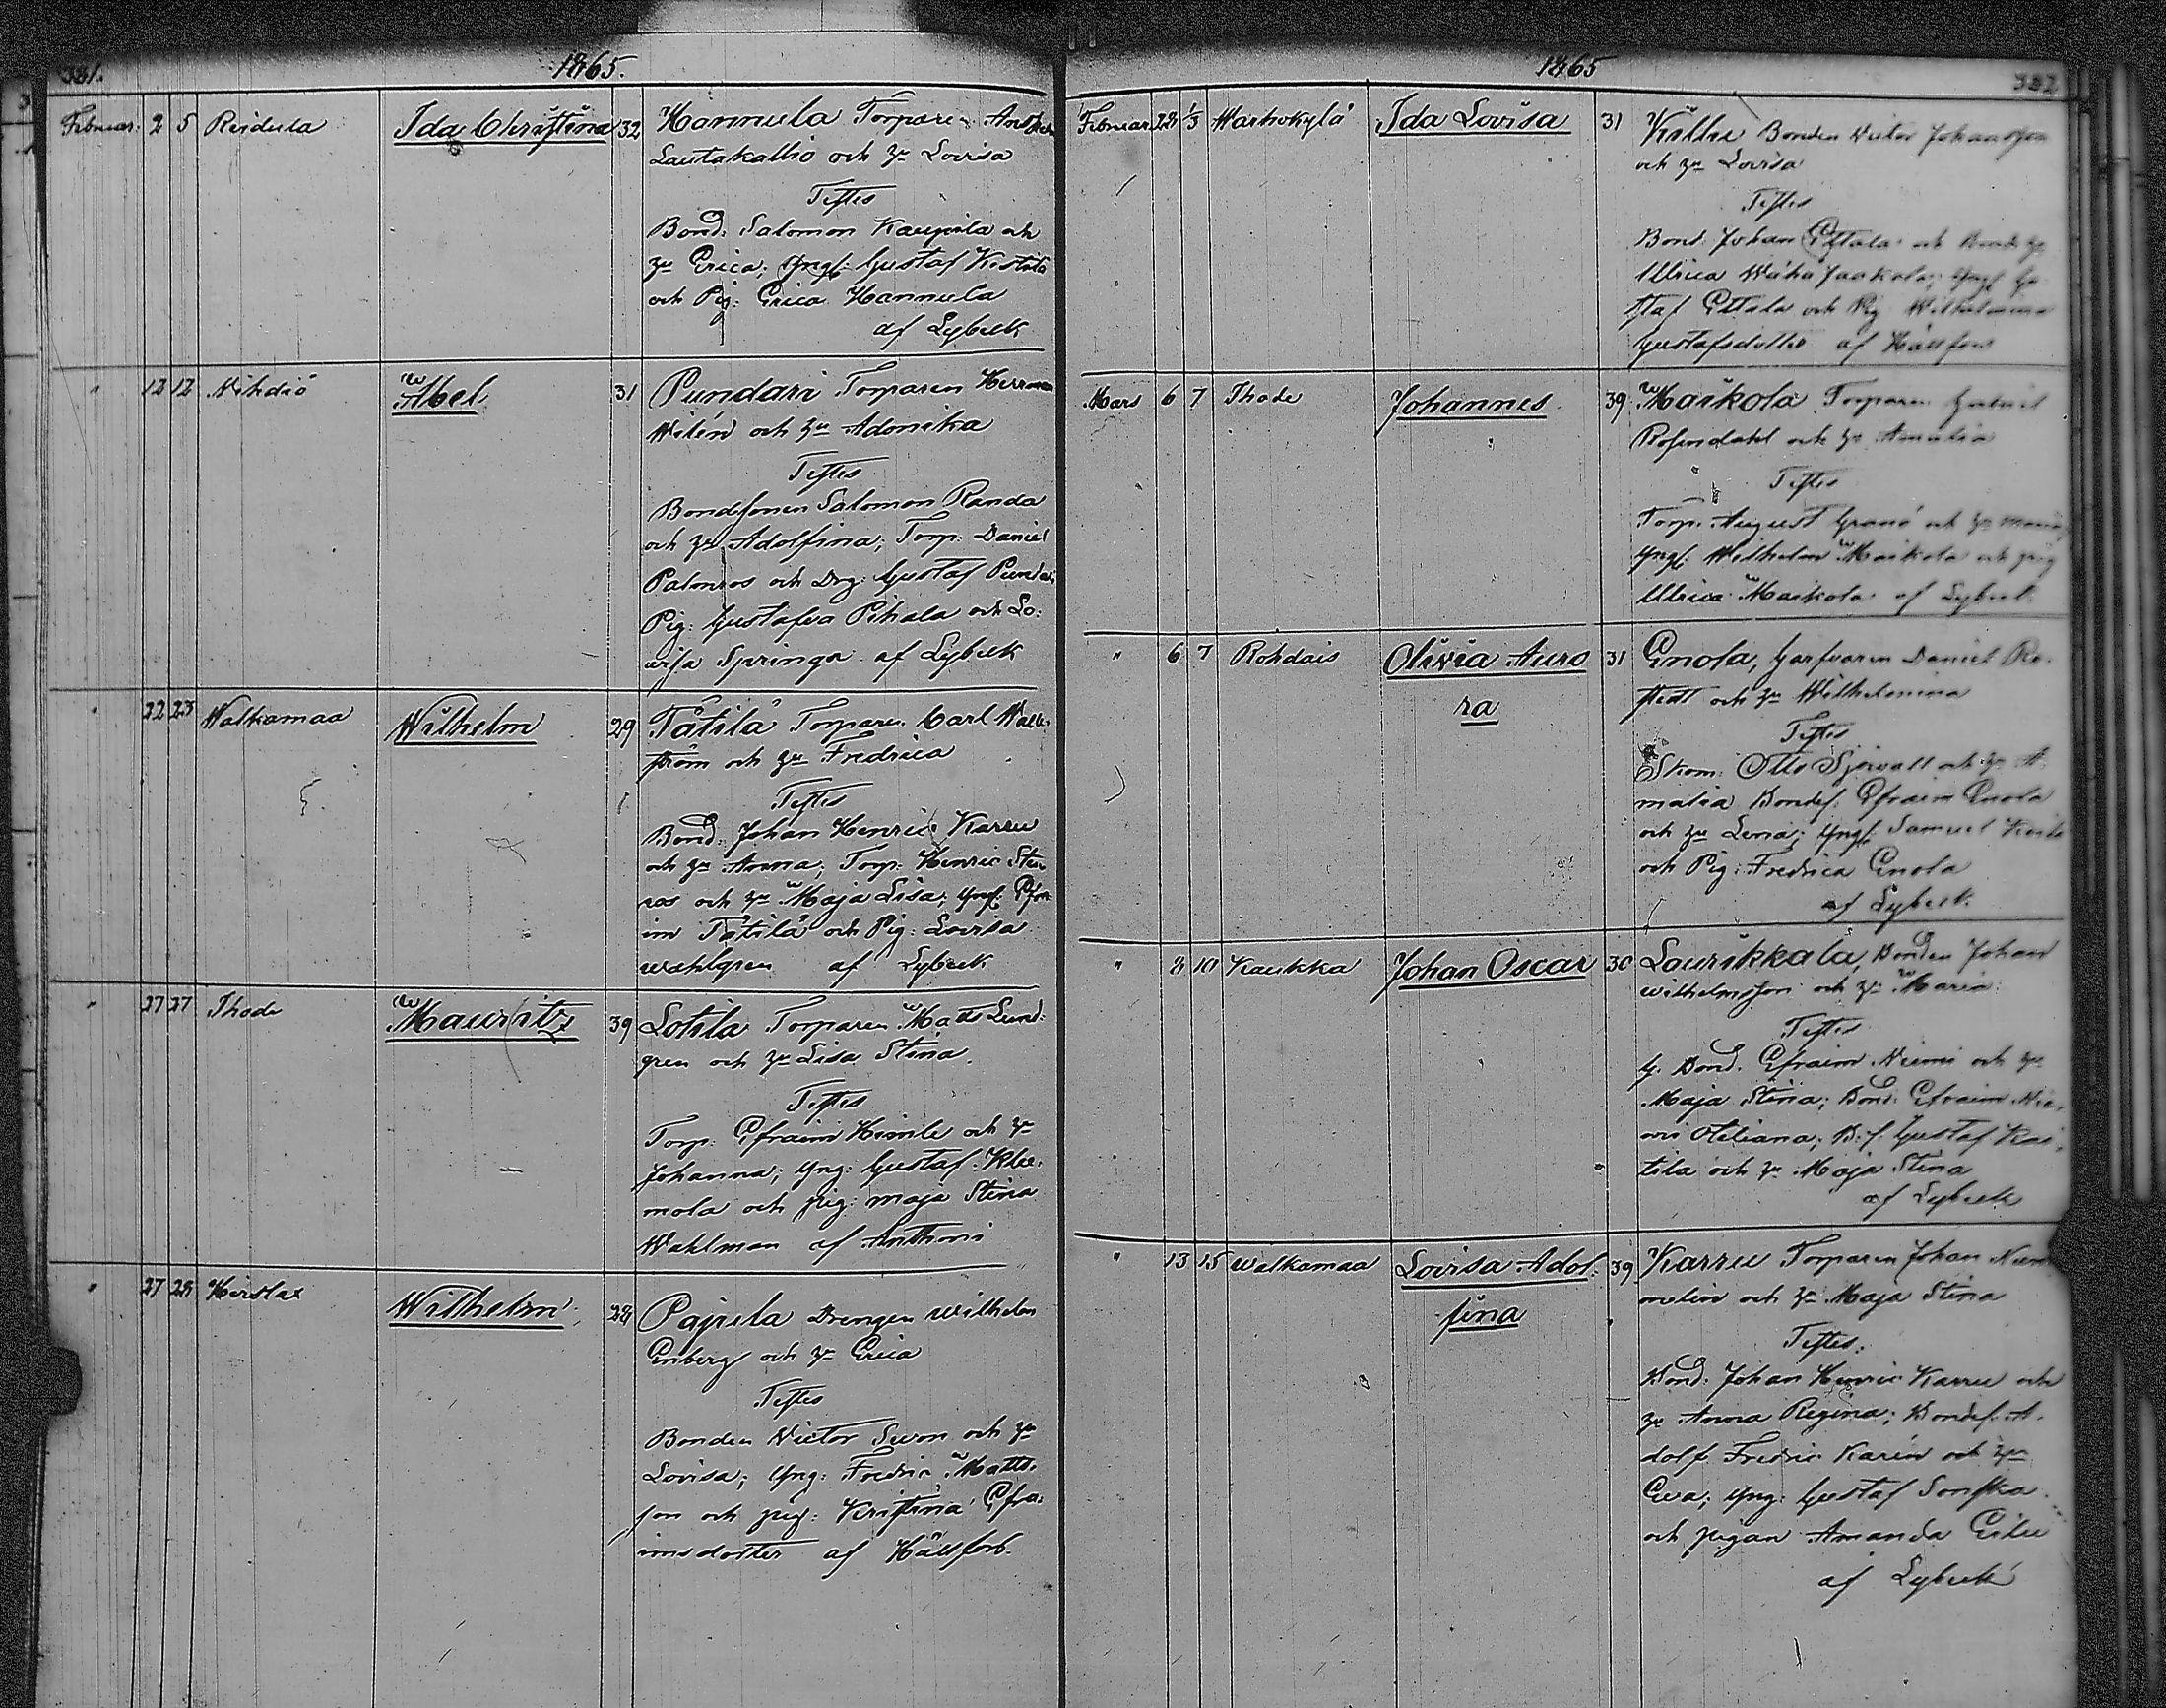 381. 1865.
Februar. 2 5 Reidula Ida Christina 32 Hannula Torparen
Lautakallio och hu Lovisa
Testes
Bond: Salomon Kaupila och
hu Erica; Yngl: Gustaf
och Pig: Erica Hannula
af Lybeck
" 12 12 Abel 31 Pundari Torparen Herrman
Wilén och hu Adonika
Testes
Bondesonen Salomon Randa
och hu Adolfina; Torp: Daniel
Palonros och Drg: Gustaf
Pig: Gustafva Pihala och Lo:
visa Springa af Lybeck
" 22 23 Walkamaa Wilhelm 29 Tätilä Torparen Carl Wall:
ström och hu Fredrica
Testes
Bond: Johan Henric Karru
och hu Anna; Torp: Henric
ros och hu Maja Lisa; Yngl: Efra
im Tätilä och Pig: Lovisa
wahlgren af Lybeck
" 27 27 Thode Mauritz 39 Lotila Torparen Matts Lund:
gren och hu Lisa Stina.
Testes
Torp: Efraim och hu
Johanna; Yng: Gustaf Kle:
mola och pig: maja Stina
Wahlman af Anthoni
" 27 28 Wilhelm 28 Pajula Drengen Wilhelm
Enberg och hu Erica
Testes
Bonden Victor och hu
Lovisa; Yng: Fredric Matts:
son och pig: Kristina Efra:
imsdotter af Hällfors.
1865 382
Februar 28 1/3 Markokylä Ida Lovisa 31 Bonden Victor Johansson
och hu Lovisa
Testes
Bond: Johan och
Ullrica Wäha Jaakola; Yngl Gu
staf och Pig Wilhelmina
Gustafsdotter af Hällfors
Mars 6 7 Thode Johannes 39 Maikola Torparen Gabriel
Rosendahl och hu Amalia
Testes
Torp. August Granö och hu Maria,
Yngl. Wilhelm Maikola och pig
Ullrica Maikola af Lybeck
" 6 7 Rohdais Olivia Auro 31 Enola, Garfvaren Daniel Ro:
ra stedt och hu Wilhelmina
Testes
Skom: Otto Sjövall och hu A
malia Bondes: Efraim Enola
och hu Lena; Yngl: Samuel
och Pig: Fredrica Enola
af Lybeck.
" 8 10 Kaukka Johan Oscar 30 Laurikkala, Bonden Johan
Wilhelmsson och hu Maria
Testes
Bond. Efraim Niemi och hu
Maja Stina; Bond: Efraim Nie,
Gustaf Kas
tila och hu Maja Stina
af Lybeck
" 13 15 Walkamaa Lovisa Adol: 39 Karru Torparen Johan
fina och hu Maja Stina
Testes:
Bond: Johan Henric Karru och
hu Anna Regina; Bondes: A.
dolf Fredric Karén och hu
Eva; Yng: Gustaf
och pigan Amanda
af Lybeck